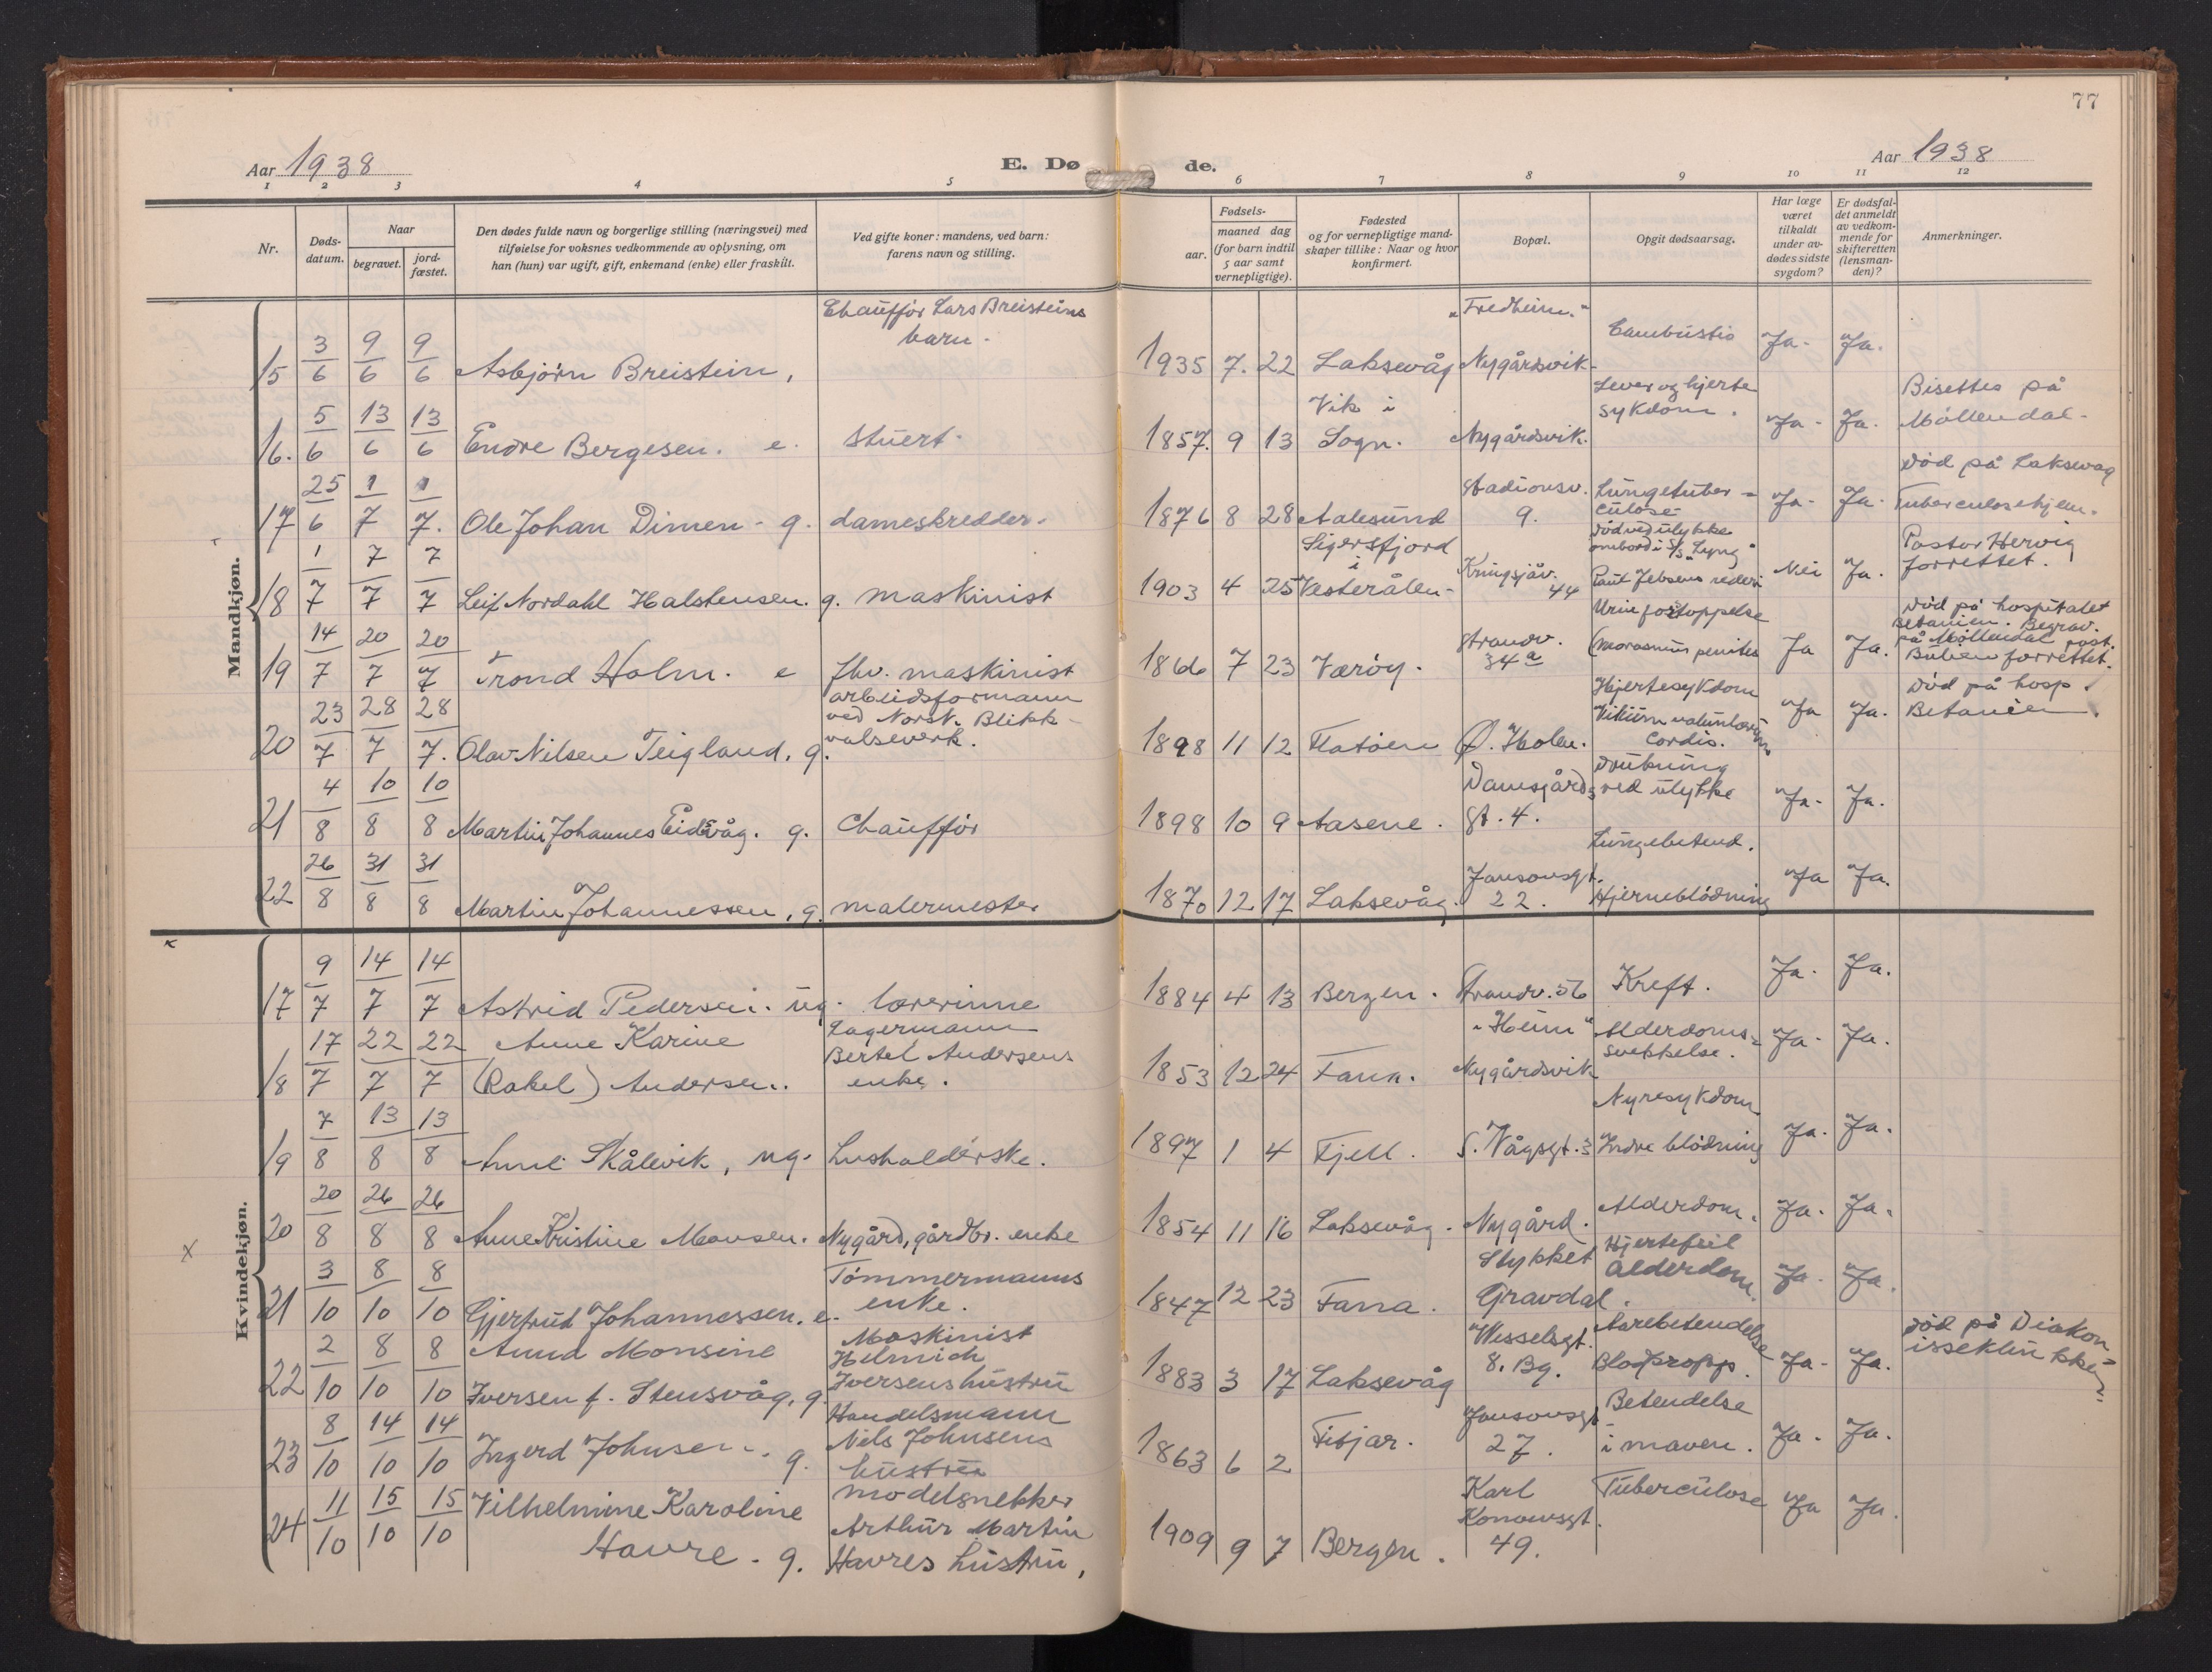 77
Aar 1938
E. Dø de.
Aar 1938
1 2 3 4 5 6 7 8 9 10 11 12
Nr.
Døds-datum.
Naar
begravet.
jord-fæstet.
Den dødes fulde navn og borgerlige stilling (næringsvei) med
tilføielse for voksnes vedkommende av oplysning, om
han (hun) var ugift, gift, enkemand (enke) eller fraskilt.
Ved gifte koner: mandens, ved barn:
farens navn og stilling.
Fødsels-
aar.
maaned dag
(for barn indtil
5 aar samt
vernepligtige).
Fødested
og for vernepligtige mand-
skaper tillike: Naar og hvor
konfirmert.
Bopæl.
Opgit dødsaarsag.
Har læge
været
tilkaldt
under av-
dødes sidste
sygdom?
Er dødsfal-
det anmeldt
av vedkom-
mende for
skifteretten
(lensman-
den)?
Anmerkninger.
Mandkjøn.
15 3/6 9/6 9/6 Asbjørn Breistein, Chauffør Lars Breisteins barn. 1935 7. 22 Laksevåg "Fredheim." Nygårdsvik. Combustio Ja. Ja.
16. 5/6 13/6 13/6 Endre Bergesen. e. Stuert. 1857. 9 13 Vik i Sogn. Nygårdsvik. Lever og hjerte sykdom. Ja. Ja. Bisettes på Møllendal.
17 25/6 1/7 1/7. Ole Johan Dimen - g. dameskredder. 1876 8 28 Aalesund Stadionsv. 9. Lungetuberculose Ja. Ja. Død på Laksevåg Tuberculosehjem.
18 1/7 7/7 7/7 Leif Nordahl Halstensen. g. maskinist 1903 4 25 Sigersfjord i Vesterålen - Kringsjåv. 44 Død ved ulykke ombord i S/S "Lyng" Paul Jebsens rederi Nei Ja. Pastor Hervig forrettet.
19 14/7 20/7 20/7 Trond Holm. e fhv. maskinist 1866 7 23 Værøy. Strandv. 34a Urinforstoppelse Ja Ja. Død på hospitalet Betanien. Begrav. på Møllendal past. forrettet.
20 23/7 28/7 28/7. Olav Nilsen Teigland, g. arbeidsformann ved Norsk. Blikkvalseverk. 1898 11 12 Flatöen Ø. Holm. Hjertesykdom Vitium cordis. Ja Ja. Død på hosp. Betanien.
21 4/8 10/8 10/8 Martin Johannes Eidsvåg. g. Chauffør 1898 10 9 Aasene. Damsgårdsgt. 4. Drukning ved ulykke Ja. Ja.
22 26/8 31/8 31/8 Martin Johannessen, g. malermester 1870 12 17 Laksevåg. Jansonsgt. 22. Lungebetend. Hjerneblødning Ja Ja.
Kvindekjøn.
17 9/7 14/7 14/7 Astrid Pedersen. ug. lærerinne 1884 4 13 Bergen. Strandv. 56 Kreft. Ja. Ja.
18 17/7 22/7 22/7 Anne Karine (Rakel) Andersen. Lagermann Bertel Andersens enke. 1853 12 24 Fana. "Heim" Nygårdsvik Alderdomssvekkelse. Ja. Ja.
19 7/8 13/8 13/8 Anne Skålevik, ug. husholderske. 1897 1 4 Fjell. S. Vågsgt. 3 Nyresykdom Indre blødning Ja. Ja.
20 20/8 26/8 26/8 Anne Kristine Monsen. Nygård, gårdbr. enke 1854 11 16 Laksevåg. Nygård. Alderdom. Ja. Ja.
x
21 3/10 8/10 8/10 Gjertrud Johannessen. e. Tømmermanns enke. 1847 12 23 Fana. Stykket Gravdal. Hjertefeil Alderdom. Ja. Ja.
22 2/10 8/10 8/10 Anna Monsine Iversen f. Stensvåg, g. Maskinist Helmich Iversens hustru 1883 3 17 Laksevåg Wesselsgt. 8. Bg. Aarebetendelse Blodpropp. Ja. Ja. Død på Diakonisseklinikken
23 8/10 14/10 14/10 Ingerd Johnsen. g. Handelsmann Nils Johnsens hustru 1863 6 2 Fitjar. Jansonsgt 27. Betendelse i maven. Ja. Ja.
24 11/10 15/10 15/10 Vilhelmine Karoline Havre - g. modelsnekker Arthur Martin Havres hustru, 1909 9 7 Bergen. Karl Konowsgt. 49. Tuberculose Ja Ja.